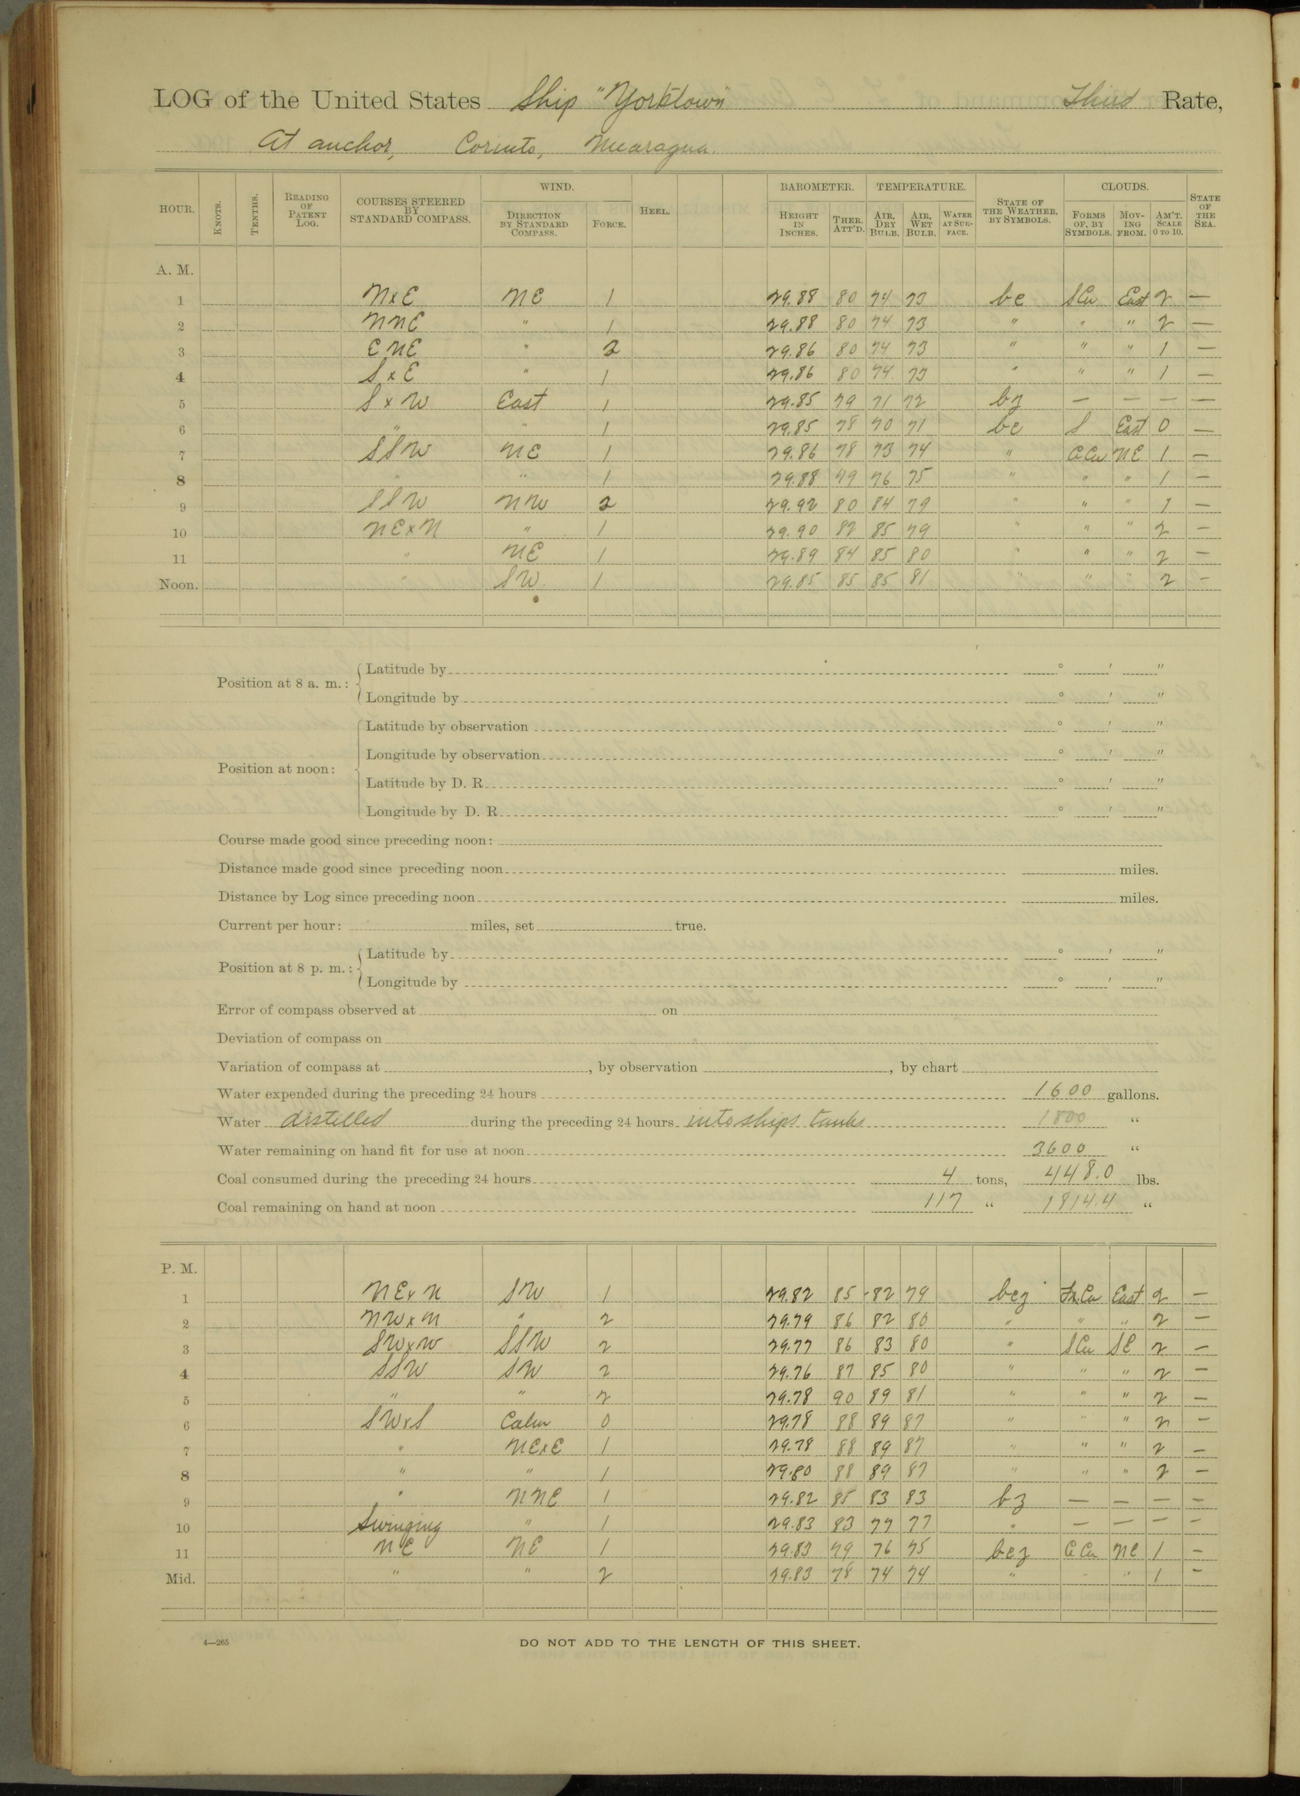 LOG of the United States Ship "Yorktown" Third Rate,
At anchor, Corinto, Nicaragua.
HOUR. KNOTS. TENTHS. READING OF PATENT LOG. COURSES STEERED BY STANDARD COMPASS. WIND. DIRECTION BY STANDARD COMPASS. FORCE. HEEL. BAROMETER. HEIGHT IN INCHES. THER. ATT'D. TEMPERATURE. AIR, DRY BULB. AIR, WET BULB. WATER AT SURFACE. STATE OF THE WEATHER, BY SYMBOLS. CLOUDS. FORMS OF, BY SYMBOLS. MOVING FROM. AM'T. SCALE 0 TO 10. STATE OF THE SEA.
A. M.
1 NxE NE 1 29.88 80 74 73 bc SCu East 2 —
2 NNE " 1 29.88 80 74 73 " " " 2 —
3 ENE " 2 29.86 80 74 73 " " " 1 —
4 SxE " 1 29.86 80 74 73 " " " 1 —
5 SxW East 1 29.85 79 71 72 bz — — — —
6 " " 1 29.85 78 70 71 bc S East 0 —
7 SSW NE 1 29.86 78 73 74 " CCu NE 1 —
8 " " 1 29.88 79 76 75 " " " 1 —
9 SSW NW 2 29.92 80 84 79 " " " 1 —
10 NExN " 1 29.90 82 85 79 " " " 2 —
11 " NE 1 29.89 84 85 80 " " " 2 —
Noon. " SW. 1 29.85 85 85 81 " " " 2 —
Position at 8 a. m.: Latitude by ° ′ ″
Longitude by ° ′ ″
Position at noon: Latitude by observation ° ′ ″
Longitude by observation ° ′ ″
Latitude by D. R. ° ′ ″
Longitude by D. R. ° ′ ″
Course made good since preceding noon:
Distance made good since preceding noon miles.
Distance by Log since preceding noon miles.
Current per hour: miles, set true.
Position at 8 p. m.: Latitude by ° ′ ″
Longitude by ° ′ ″
Error of compass observed at on
Deviation of compass on
Variation of compass at , by observation , by chart
Water expended during the preceding 24 hours 1600 gallons.
Water distilled during the preceding 24 hours into ships tanks 1800 "
Water remaining on hand fit for use at noon 3600 "
Coal consumed during the preceding 24 hours 4 tons, 448.0 lbs.
Coal remaining on hand at noon 117 " 1814.4 "
P. M.
1 NExN SW 1 29.82 85 82 79 bcz Fr.Cu East 2 —
2 NWxN " 2 29.79 86 82 80 " " " 2 —
3 SWxW SSW 2 29.77 86 83 80 " SCu SE 2 —
4 SSW SW 2 29.76 87 85 80 " " " 2 —
5 " " 2 29.78 90 89 81 " " " 2 —
6 SWxS Calm 0 29.78 88 89 87 " " " 2 —
7 " NExE 1 29.78 88 89 87 " " " 2 —
8 " " 1 29.80 88 89 87 " " " 2 —
9 " NNE 1 29.82 85 83 83 bz — — — —
10 Swinging " 1 29.83 83 77 77 " — — — —
11 NE NE 1 29.83 79 76 75 bcz CCu NE 1 —
Mid. " " 2 29.83 78 74 74 " " " 1 —
4—265
DO NOT ADD TO THE LENGTH OF THIS SHEET.